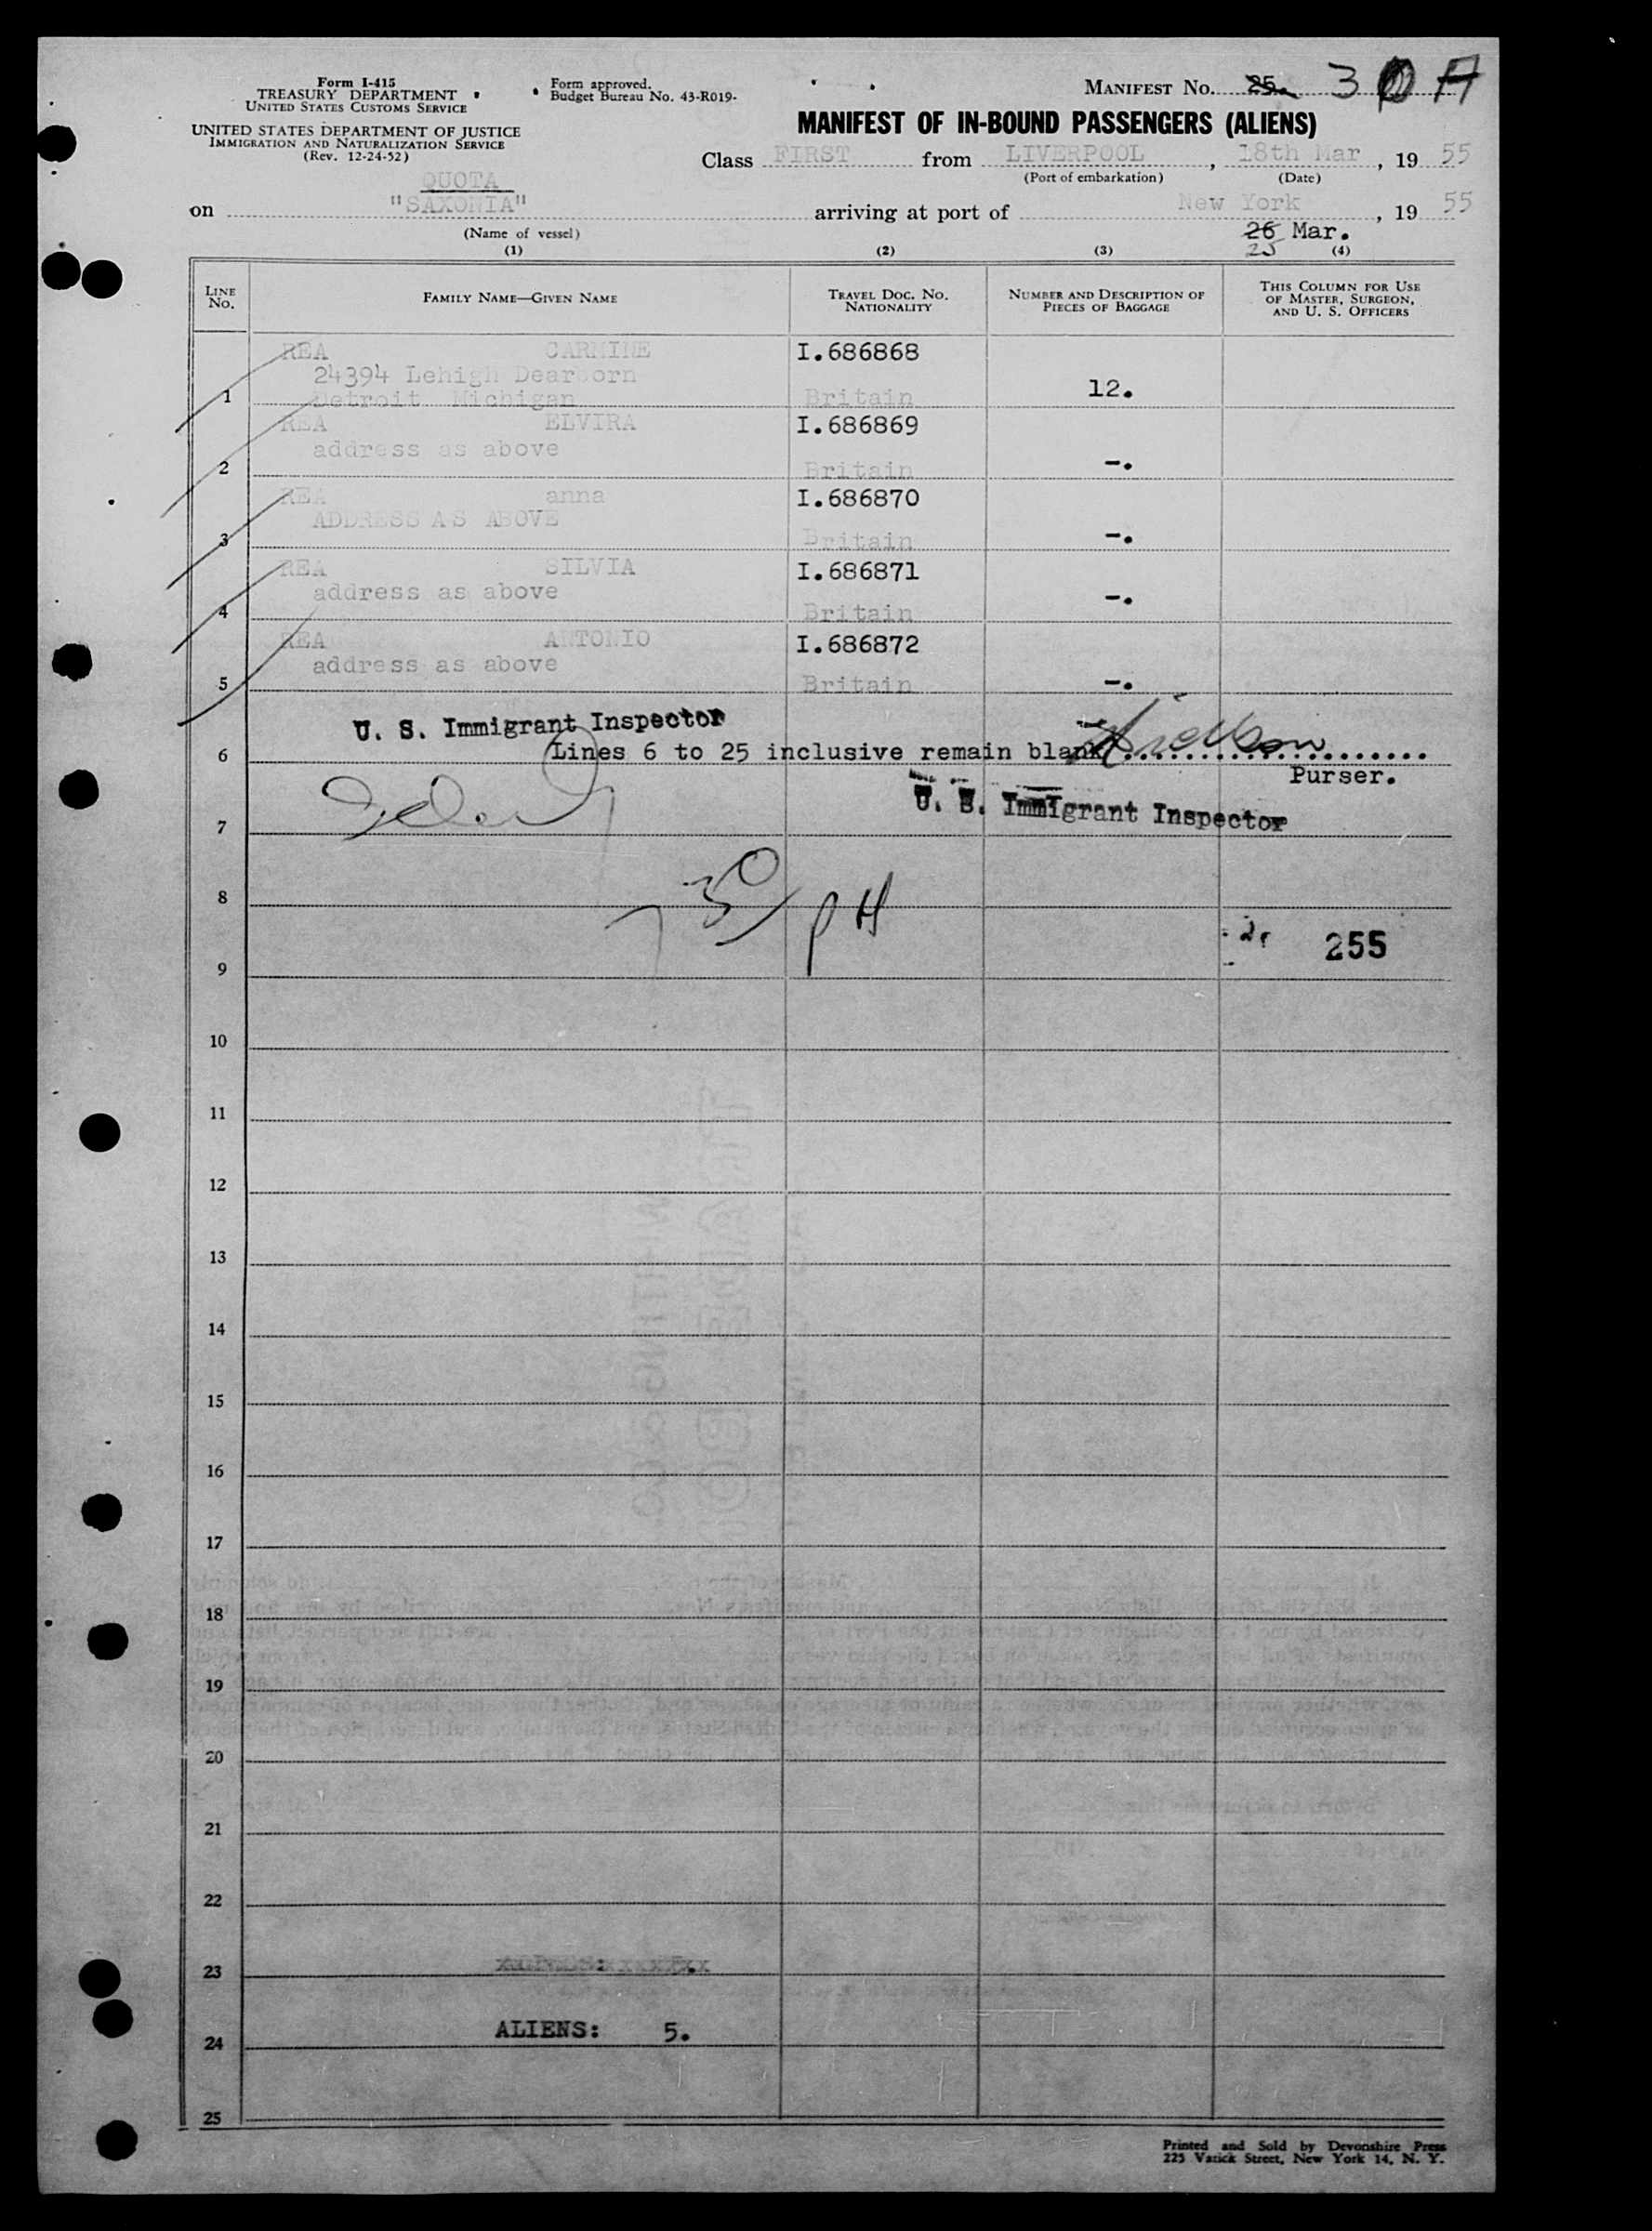 Form I-415
TREASURY DEPARTMENT
UNITED STATES CUSTOMS SERVICE
UNITED STATES DEPARTMENT OF JUSTICE
IMMIGRATION AND NATURALIZATION SERVICE
(Rev. 12-24-52)
Form approved.
Budget Bureau No. 43-R019-
MANIFEST NO. 25 30 A
MANIFEST OF IN-BOUND PASSENGERS (ALIENS)
Class FIRST from LIVERPOOL, 18th Mar, 19 55
(Port of embarkation) (Date)
QUOTA
on "SAXONIA" arriving at port of New York, 19 55
(Name of vessel) 26 Mar.
25
(1) (2) (3) (4)
LINE NO. FAMILY NAME—GIVEN NAME TRAVEL DOC. NO. NATIONALITY NUMBER AND DESCRIPTION OF PIECES OF BAGGAGE THIS COLUMN FOR USE OF MASTER, SURGEON, AND U. S. OFFICERS
REA CARMINE I.686868
24394 Lehigh Dearborn
1 Detroit Michigan Britain 12.
REA ELVIRA I.686869
address as above
2 Britain -.
REA anna I.686870
ADDRESS AS ABOVE
3 Britain -.
REA SILVIA I.686871
address as above
4 Britain -.
REA ANTONIO I.686872
address as above
5 Britain -.
U. S. Immigrant Inspector
6 Lines 6 to 25 inclusive remain blank
Purser.
U. S. Immigrant Inspector
7
8
30 PH
255
9
10
11
12
13
14
15
16
17
18
19
20
21
22
23
ALIENS: 5.
24
25
Printed and Sold by Devonshire Press
225 Varick Street, New York 14, N. Y.